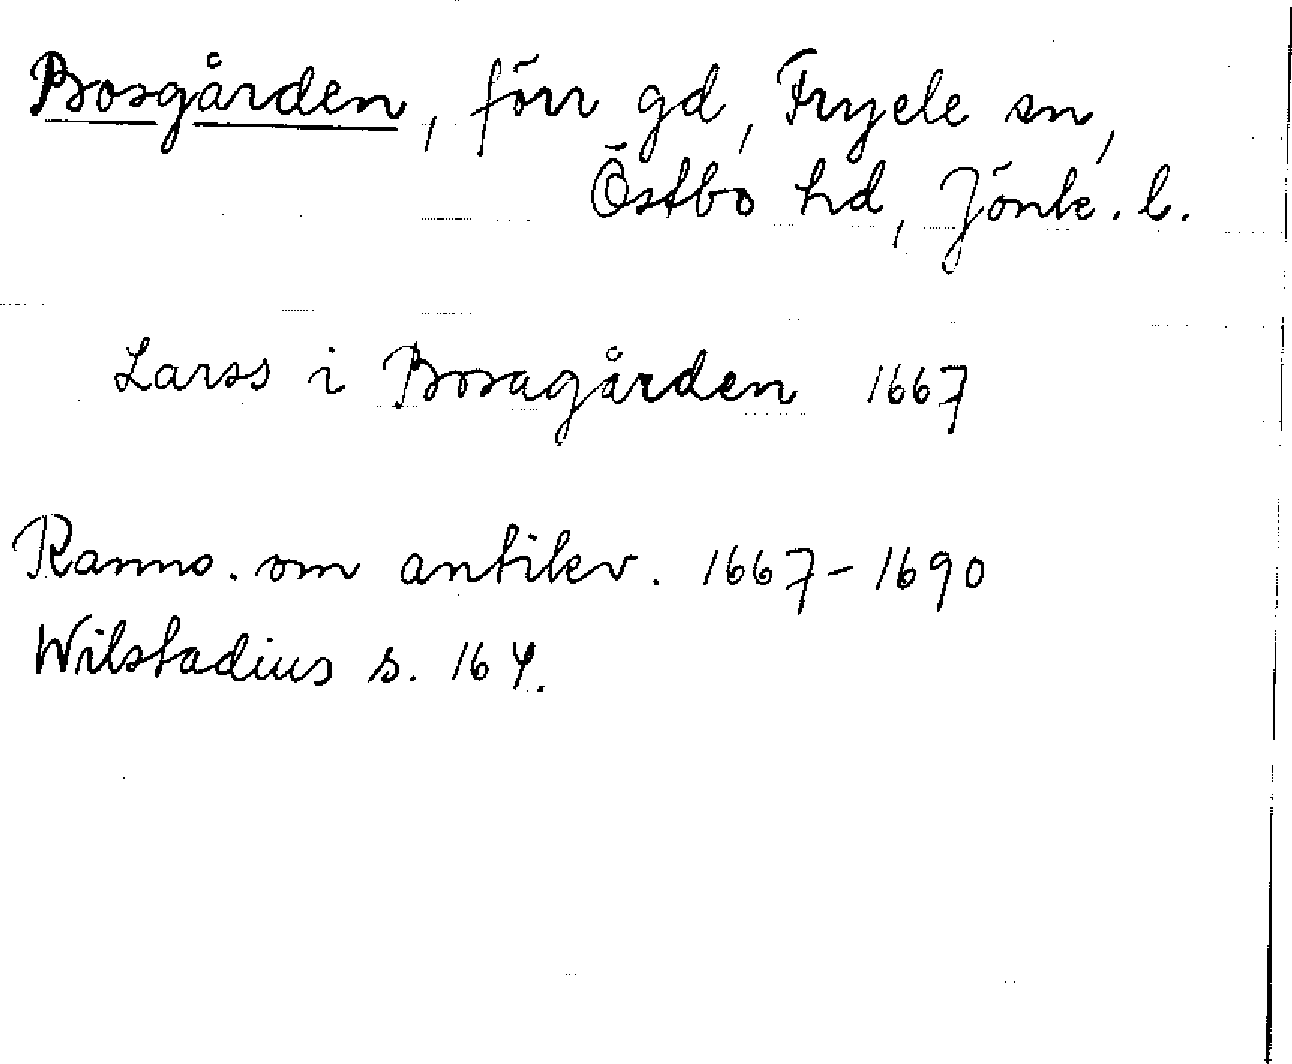 Bosgården, förr gd, Fryele sn,
Östbo hd, Jönk. l.
Larss i Bosagården 1667
Ranns. om antikv. 1667-1690
Wilstadius s. 164.